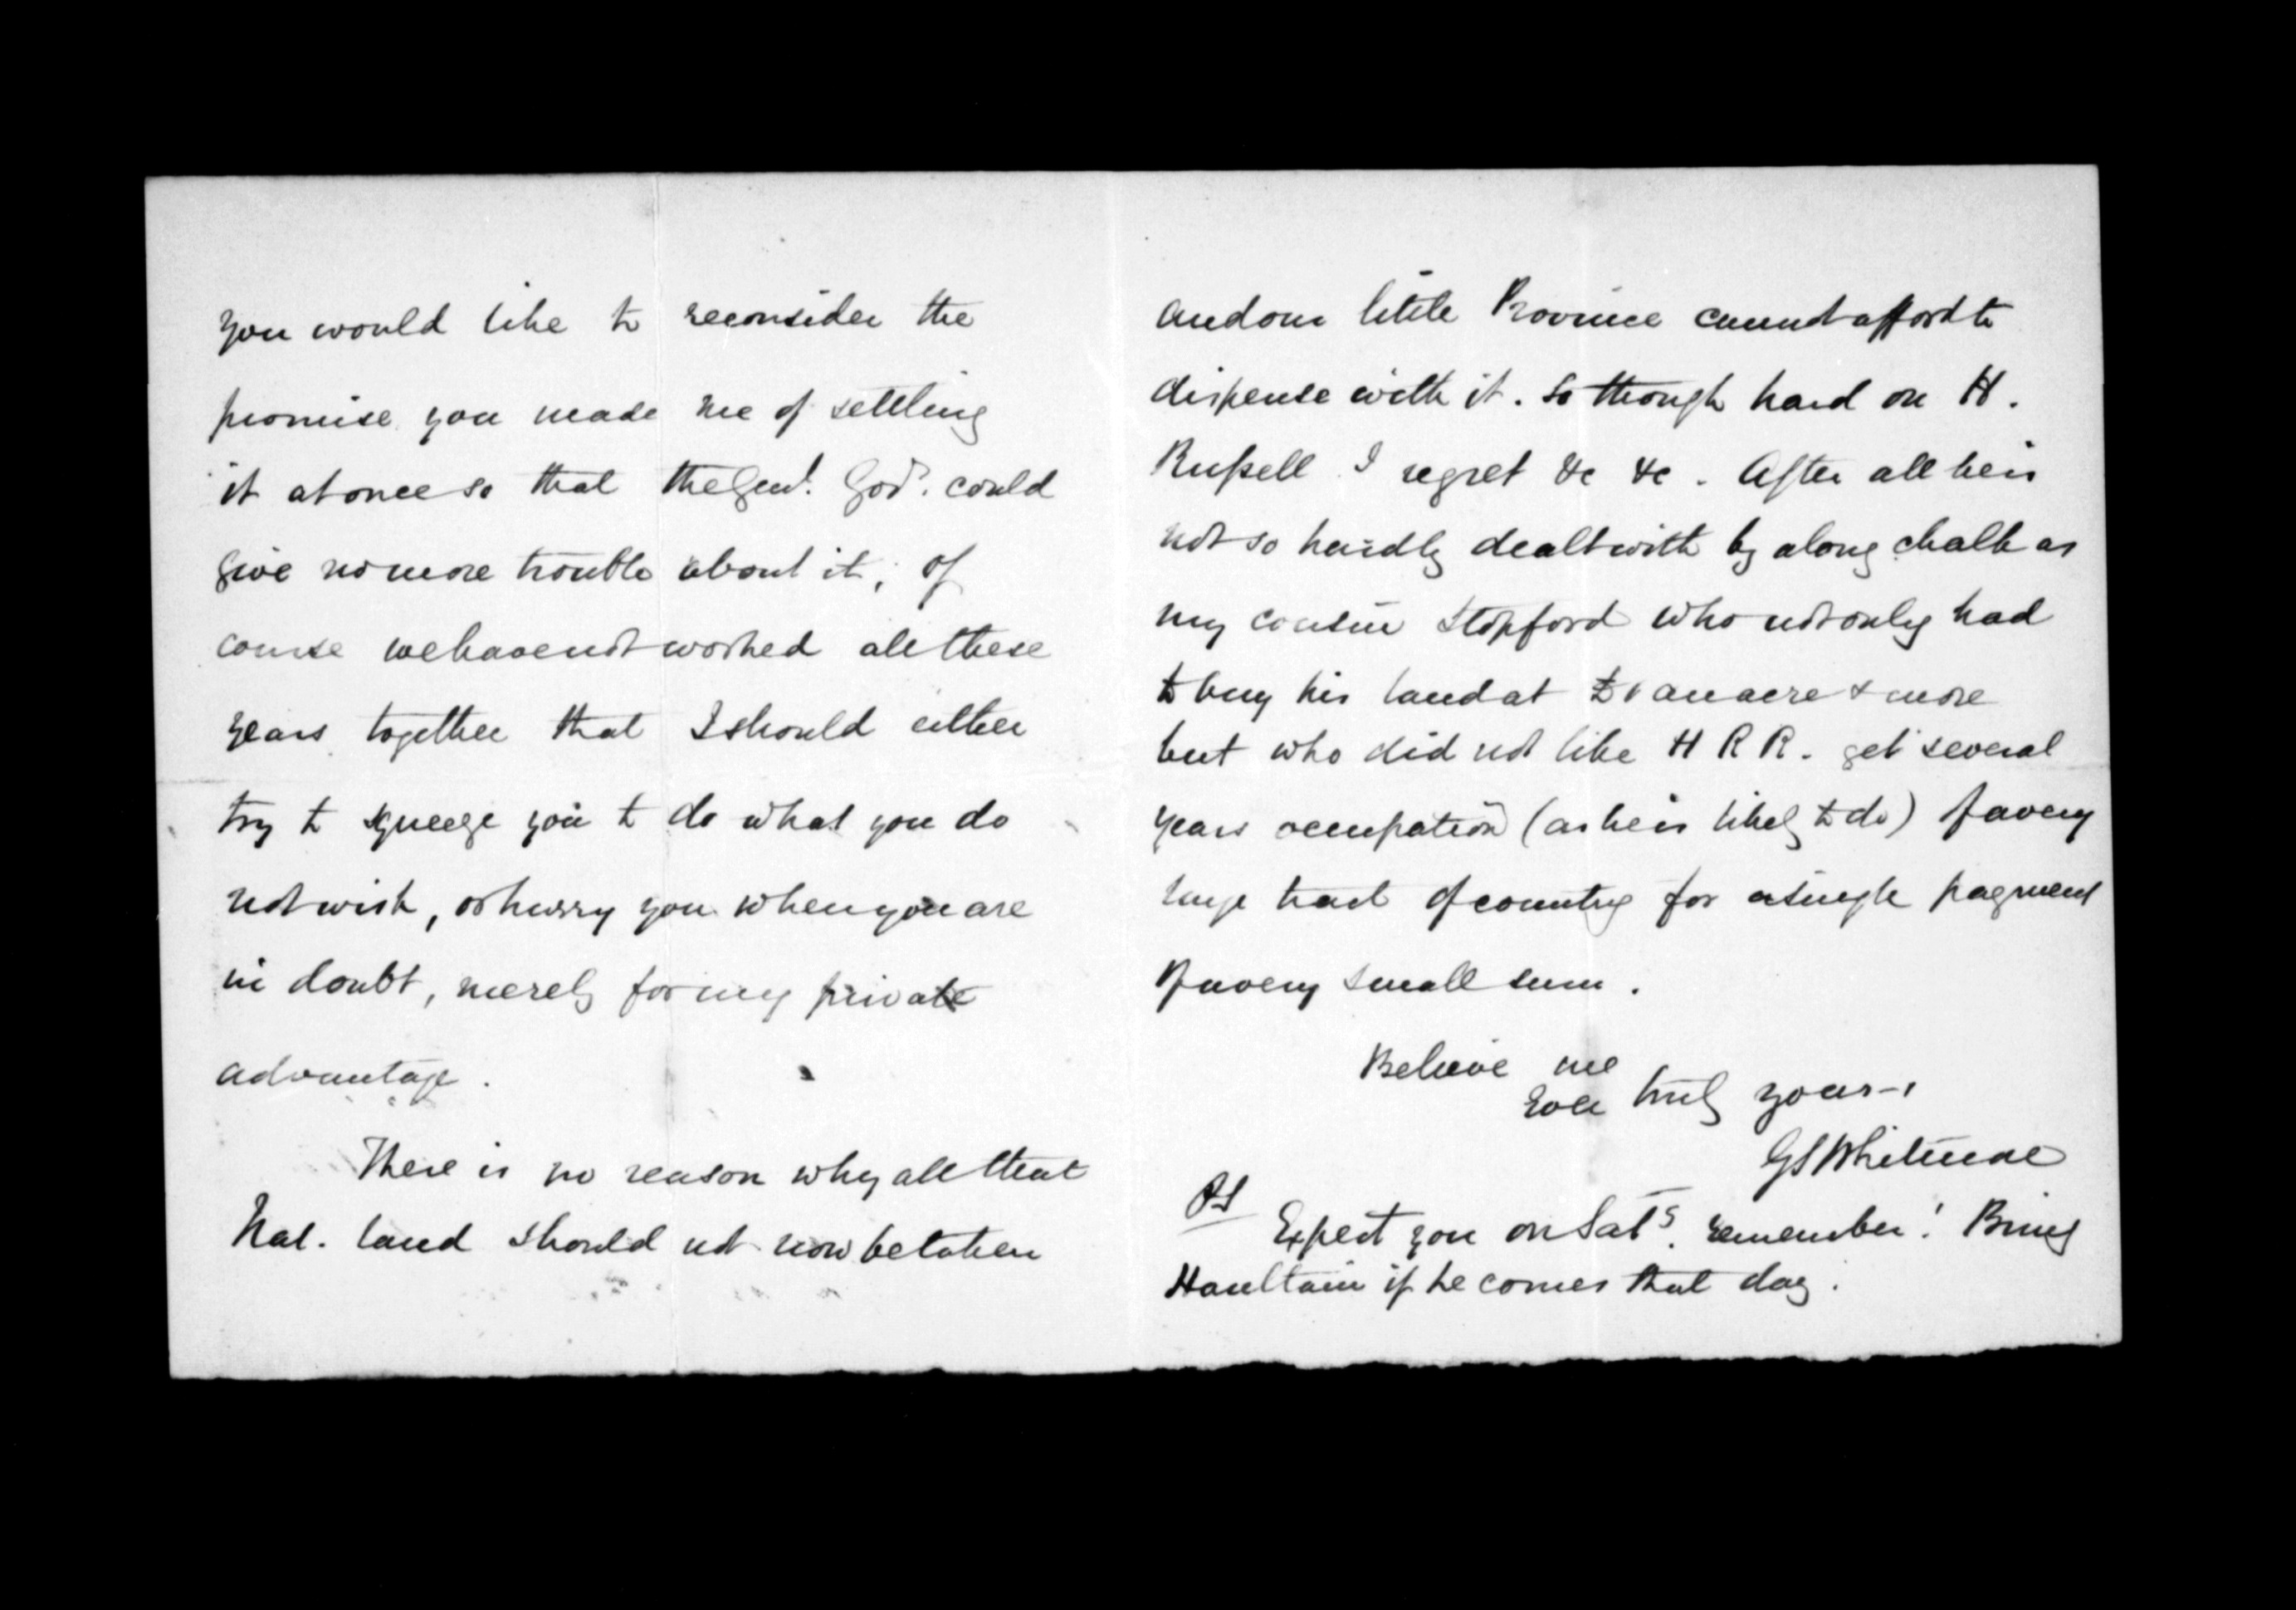 you would like to reconsider the
promise you made me of settling
it at once so that the Genl. Govt. could
give no more trouble about it; of
course we have not worked all these
years together that I should either
try to squeeze you to do what you do
not wish, or hurry you when you are
in doubt, merely for my private
advantage.
There is no reason why all that
Nat. land should not now be taken
and our little Province cannot afford to
dispense with it. So though hard on H.
Russell I regret &c &c. After all he is
not so hardly dealt with by a long chalk as
my cousin Stopford who not only had
to buy his land at £1 an acre & more
but who did not like H R R. get several
years occupation (as he is likely to do) of a very
large tract of country for a single payment
of a very small sum.
Believe me
Ever truly yours
GS Whitmore
PS
Expect you on Saty. remember! Bring
Haultain if he comes that day.